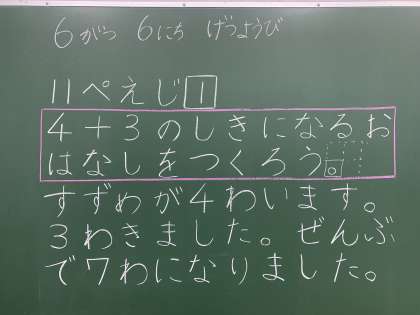 6がつ 6にち げつようび
11ぺえじ 1
4+3のしきになるお
はなしをつくろう。
すずめが4わいます。
3わきました。ぜんぶ
で7わになりました。